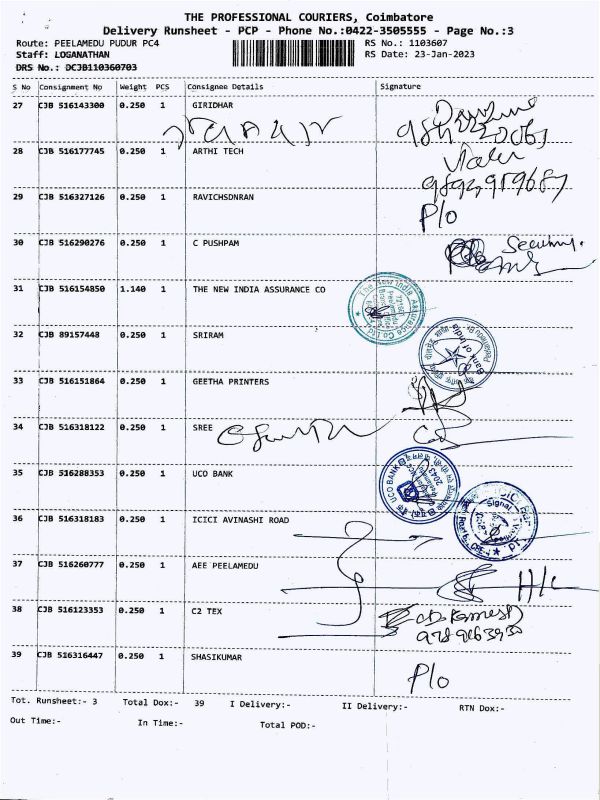 THE PROFESSIONAL COURIERS, Coimbatore
Delivery Runsheet - PCP - Phone No.:0422-3505555 - Page No.:3
Route: PEELAMEDU PUDUR PC4 RS No.: 1103607
Staff: LOGANATHAN RS Date: 23-Jan-2023
DRS No.: DCJB110360703
S No Consignment No Weight PCS Consignee Details Signature
27 CJB 516143300 0.250 1 GIRIDHAR
28 CJB 516177745 0.250 1 ARTHI TECH
29 CJB 516327126 0.250 1 RAVICHSDNRAN
P/o
30 CJB 516290276 0.250 1 C PUSHPAM
Security.
31 CJB 516154850 1.140 1 THE NEW INDIA ASSURANCE CO
The New India Assurance Co. Ltd.
32 CJB 89157448 0.250 1 SRIRAM
Bank of India
33 CJB 516151864 0.250 1 GEETHA PRINTERS
34 CJB 516318122 0.250 1 SREE
35 CJB 516288353 0.250 1 UCO BANK
UCO BANK
2043
36 CJB 516318183 0.250 1 ICICI AVINASHI ROAD
Signal
37 CJB 516260777 0.250 1 AEE PEELAMEDU
H/c
38 CJB 516123353 0.250 1 C2 TEX
39 CJB 516316447 0.250 1 SHASIKUMAR
P/o
Tot. Runsheet:- 3 Total Dox:- 39 I Delivery:- II Delivery:- RTN Dox:-
Out Time:- In Time:- Total POD:-